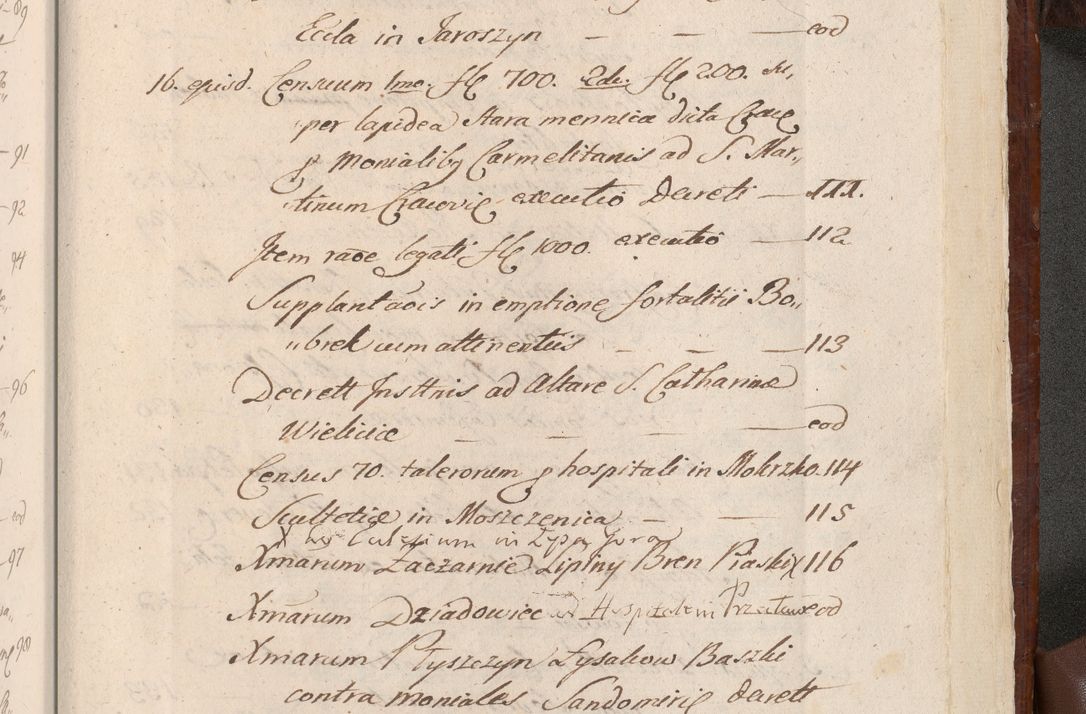 Eccla in Jaroszyn — — — eod
16. episd. Censuum 1mo. fl 700. 2do. fl 200. su,
per lapidea Stara mennica dicta Crac
p Monialibq Carmelitanis ad S. Mar„
„tinum Cracovie executio Decreti — 111.
Item raõe legati fl 1000. executio — 112
Supplantaõis in emptione fortalitii Bo„
„brek cum attinentiis — — — 113
Decrett Insttnis ad Altare S. Catharinæ
Wieliciæ — — — — eod
Census 70. talerorum p hospitali in Mokrzko. 114
Scultetiæ in Moszczenica — — 115
X in Łysa Gora
Xmarum Zaczarnie Lipiny Bren Piaski X 116
Xmarum Dziadowiec Hospitalem eod
Xmarum Ptyszczyn Łysakow Baszki
contra moniales Sandomirie decrett
89
91
92
94
96
eod
97
98